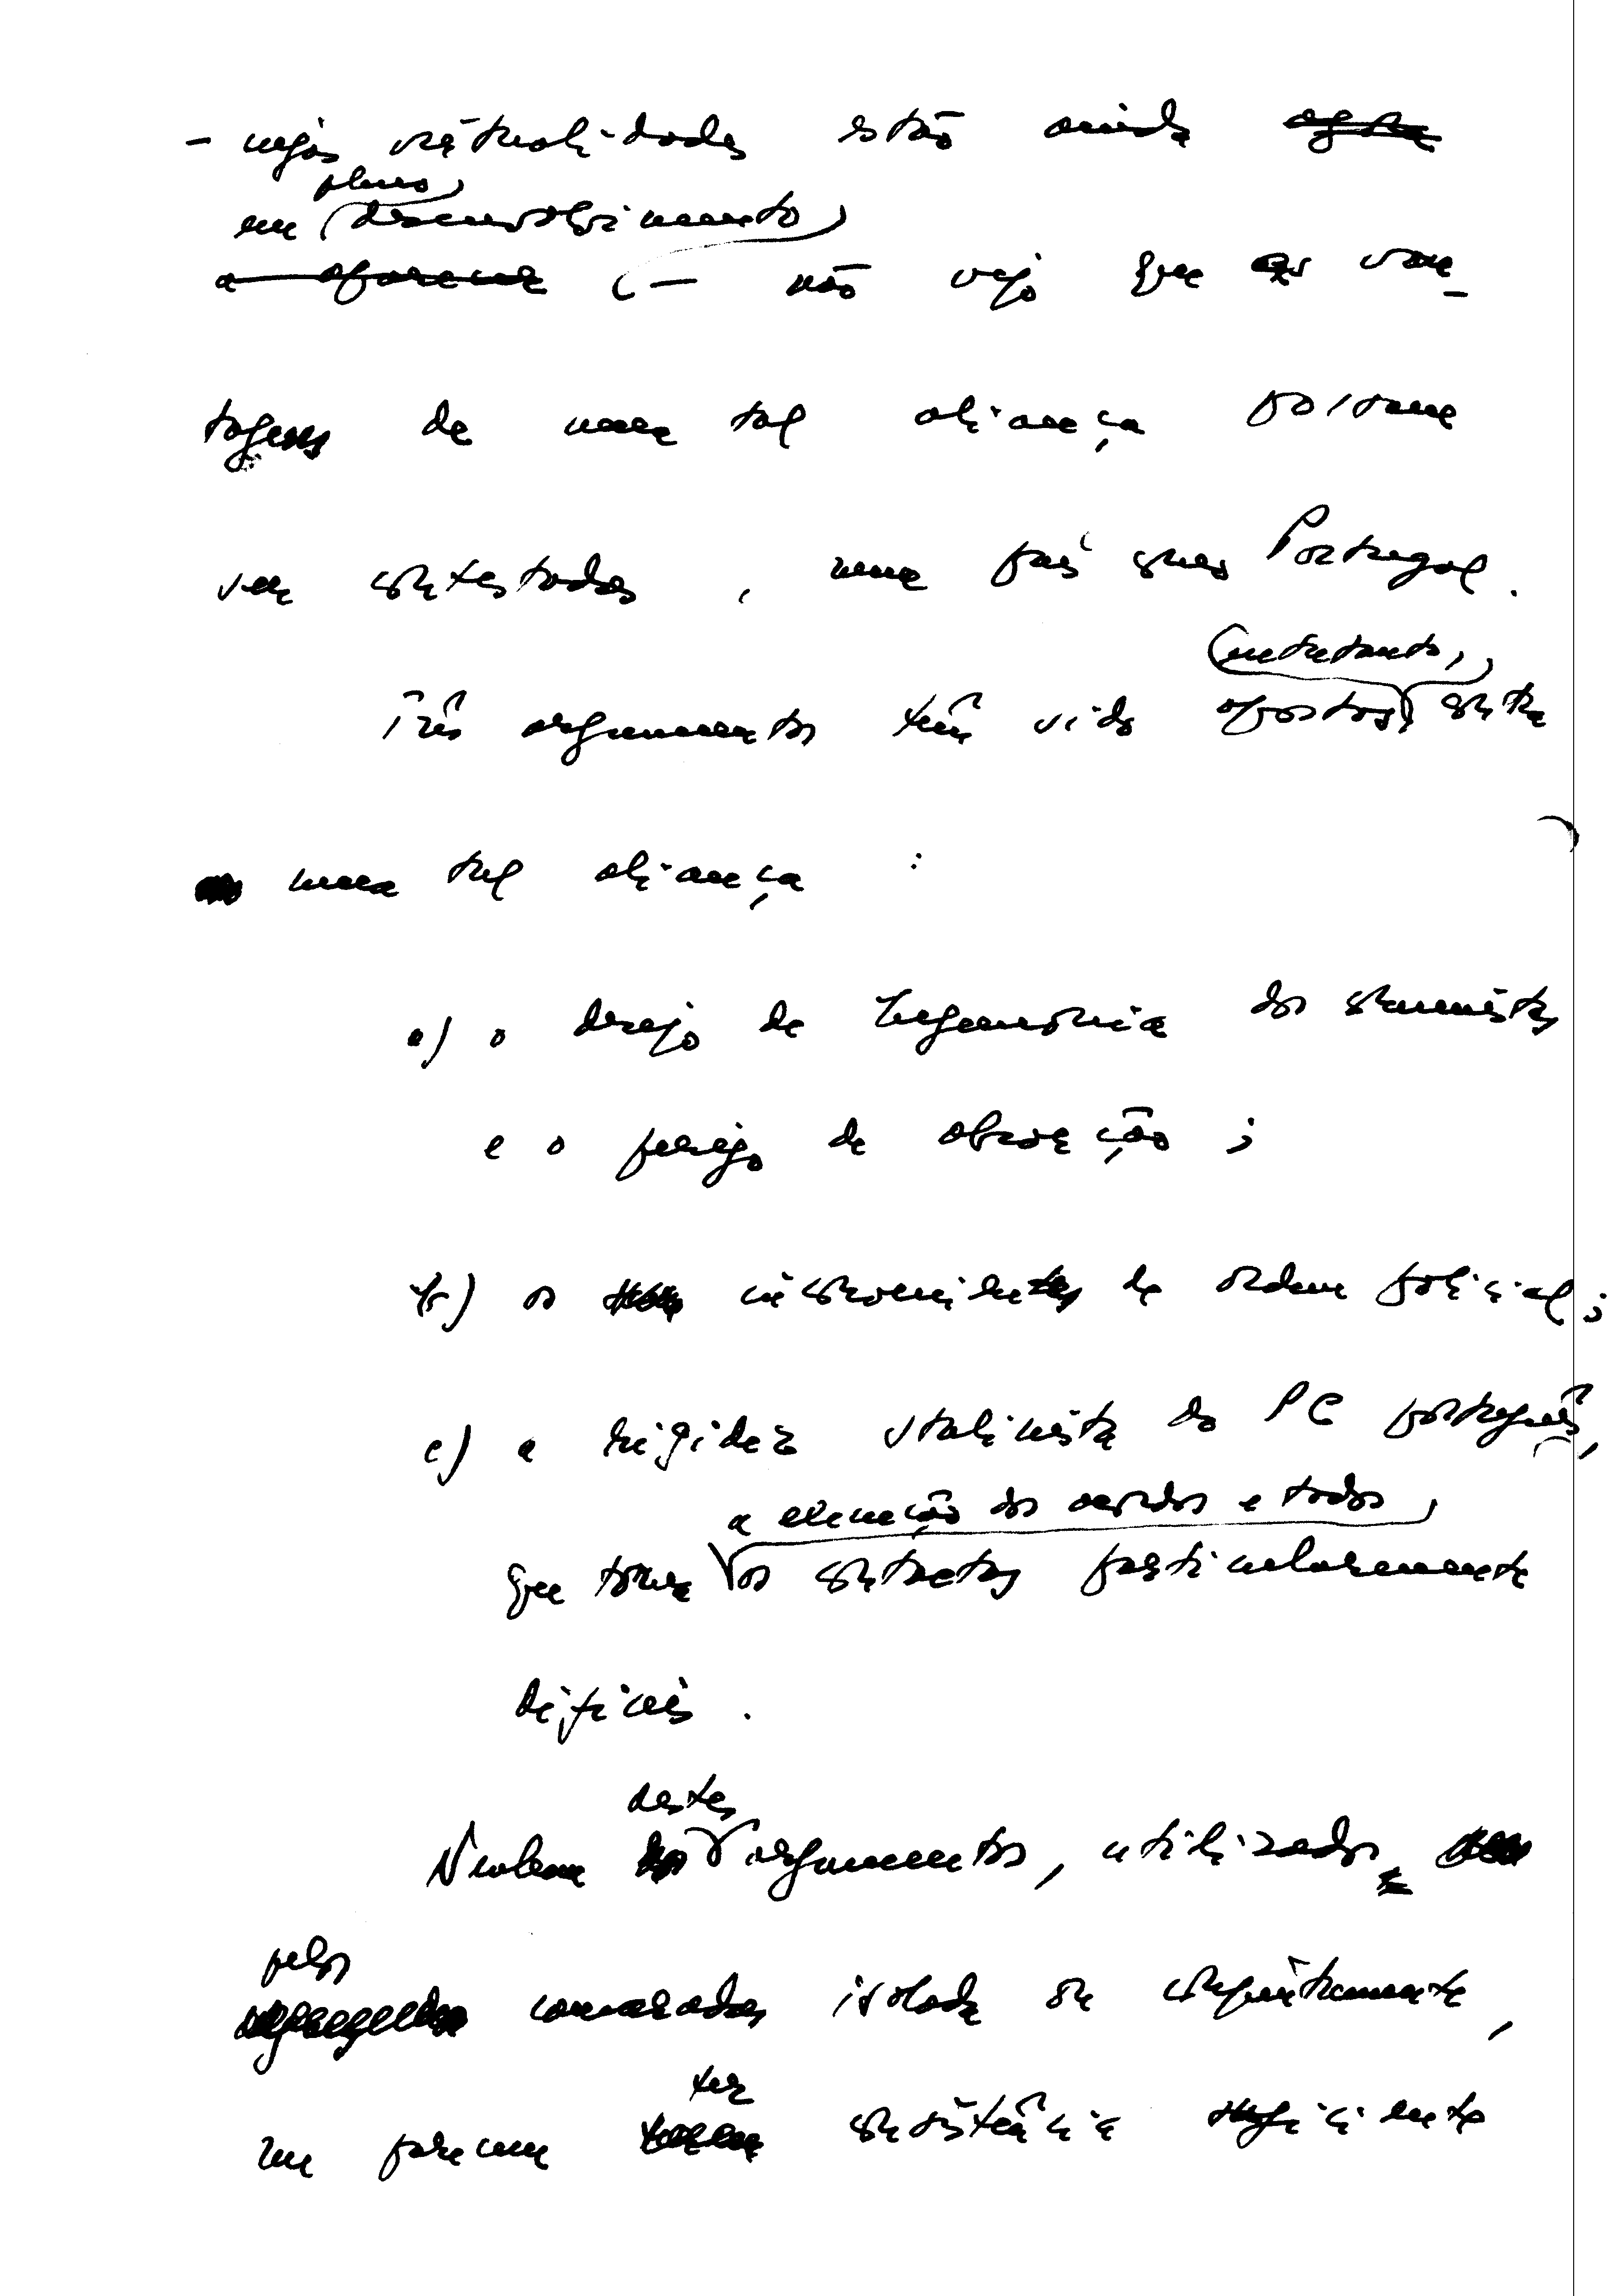 - cujas virtualidades estão ainda agora
pleno
em desenvolvimento
a aparecer (- não vejo que as van-
tagens de uma tal aliança possam
ser contestadas, num país como Portugal.
entretanto,
Três argumentos têm sido opostos contra
uma tal aliança :
a) o desejo de hegemonia dos comunistas
e o perigo de absorção ;
b) os inconvenientes de ordem policial ;
c) a rigidez stalinista do PC português,
a elevação dos acordos e todos
que torna os contactos particularmente
difíceis .
destes
Nenhum argumentos, utilizados
pelos
camaradas isolada ou conjuntamente,
ter
me parecem consistência suficiente